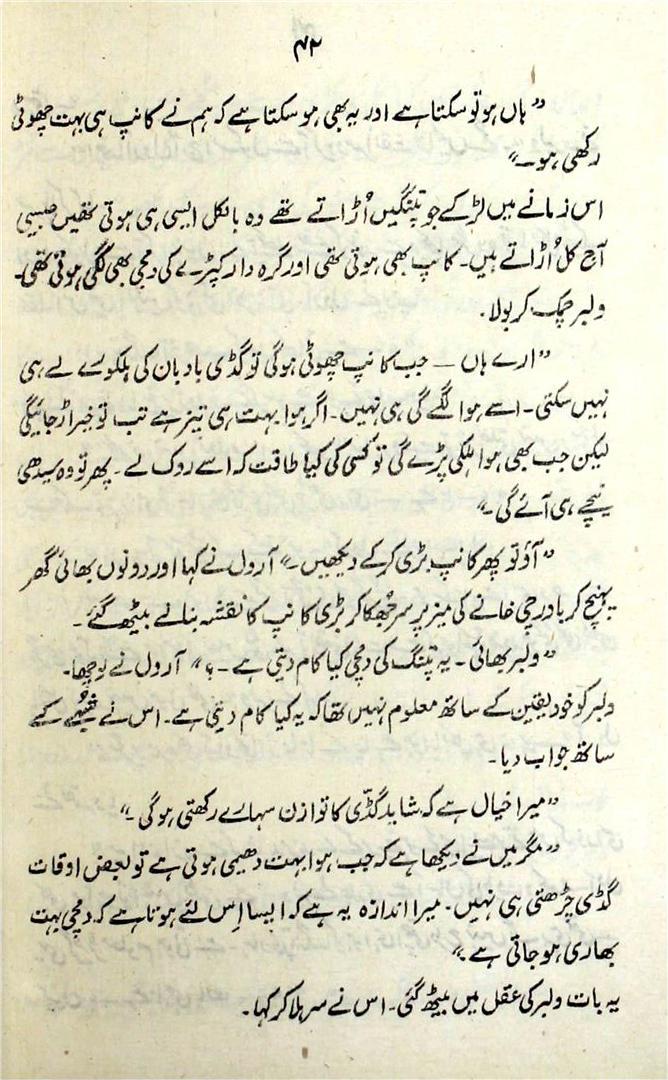 ۴۲
”ہاں ہو تو سکتا ہے اور یہ بھی ہو سکتا ہے کہ ہم نے کانپ ہی بہت چھوٹی
رکھی ہو۔“
اس زمانے میں لڑکے جو پتنگیں اُڑاتے تھے وہ بالکل ایسی ہی ہوتی تھیں جیسی
آج کل اُڑاتے ہیں۔ کانپ بھی ہوتی تھی اور گرہ دار کپڑے کی دمچی بھی لگی ہوتی تھی۔
ولبر چمک کر بولا۔
”ارے ہاں — جب کانپ چھوٹی ہوگی تو گڈی بادبان کی ہلکوسے لے ہی
نہیں سکتی۔ اسے ہوا لگے گی ہی نہیں۔ اگر ہوا بہت ہی تیز ہے تب تو خیر اڑ جائیگی
لیکن جب بھی ہوا ہلکی پڑے گی تو کسی کی کیا طاقت کہ اسے روک لے۔ پھر تو وہ سیدھی
نیچے ہی آئے گی۔“
”آؤ تو پھر کانپ بڑی کر کے دیکھیں۔“ آرول نے کہا اور دونوں بھائی گھر
پہنچ کر باورچی خانے کی میز پر سر جھکا کر بڑی کانپ کا نقشہ بنانے بیٹھ گئے۔
”ولبر بھائی۔ یہ پتنگ کی دمچی کیا کام دیتی ہے۔؟“ آرول نے پوچھا۔
ولبر کو خود یقین کے ساتھ معلوم نہیں تھا کہ یہ کیا کام دیتی ہے۔ اس نے شبہے کے
ساتھ جواب دیا۔
”میرا خیال ہے کہ شاید گڈی کا توازن سہارے رکھتی ہوگی۔“
”مگر میں نے دیکھا ہے کہ جب ہوا بہت دھیمی ہوتی ہے تو بعض اوقات
گڈی چڑھتی ہی نہیں۔ میرا اندازہ یہ ہے کہ ایسا اِس لئے ہوتا ہے کہ دمچی بہت
بھاری ہو جاتی ہے۔“
یہ بات ولبر کی عقل میں بیٹھ گئی۔ اس نے سر ہلا کر کہا۔